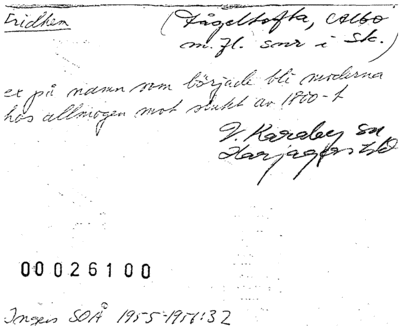 Fridhem (Fågeltofta, Albo
m. fl. snr i Sk.)
ex på namn som började bli moderna
hos allmogen mot slutet av 1800-t
V. Karaby sn
Harjagers hd
00026100
SOÅ 1955-1956:32